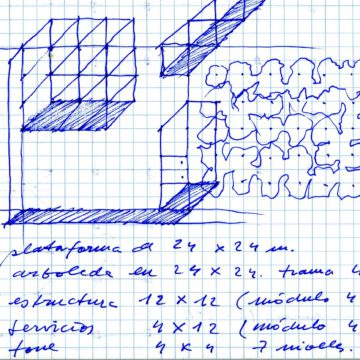 plataforma de 24 x 24 m.
arboleda en 24 x 24. trama 4
estructura 12 x 12 (módulo 4
servicios 4 x 12 (módulo 4
torre 4 x 4 7 niveles.